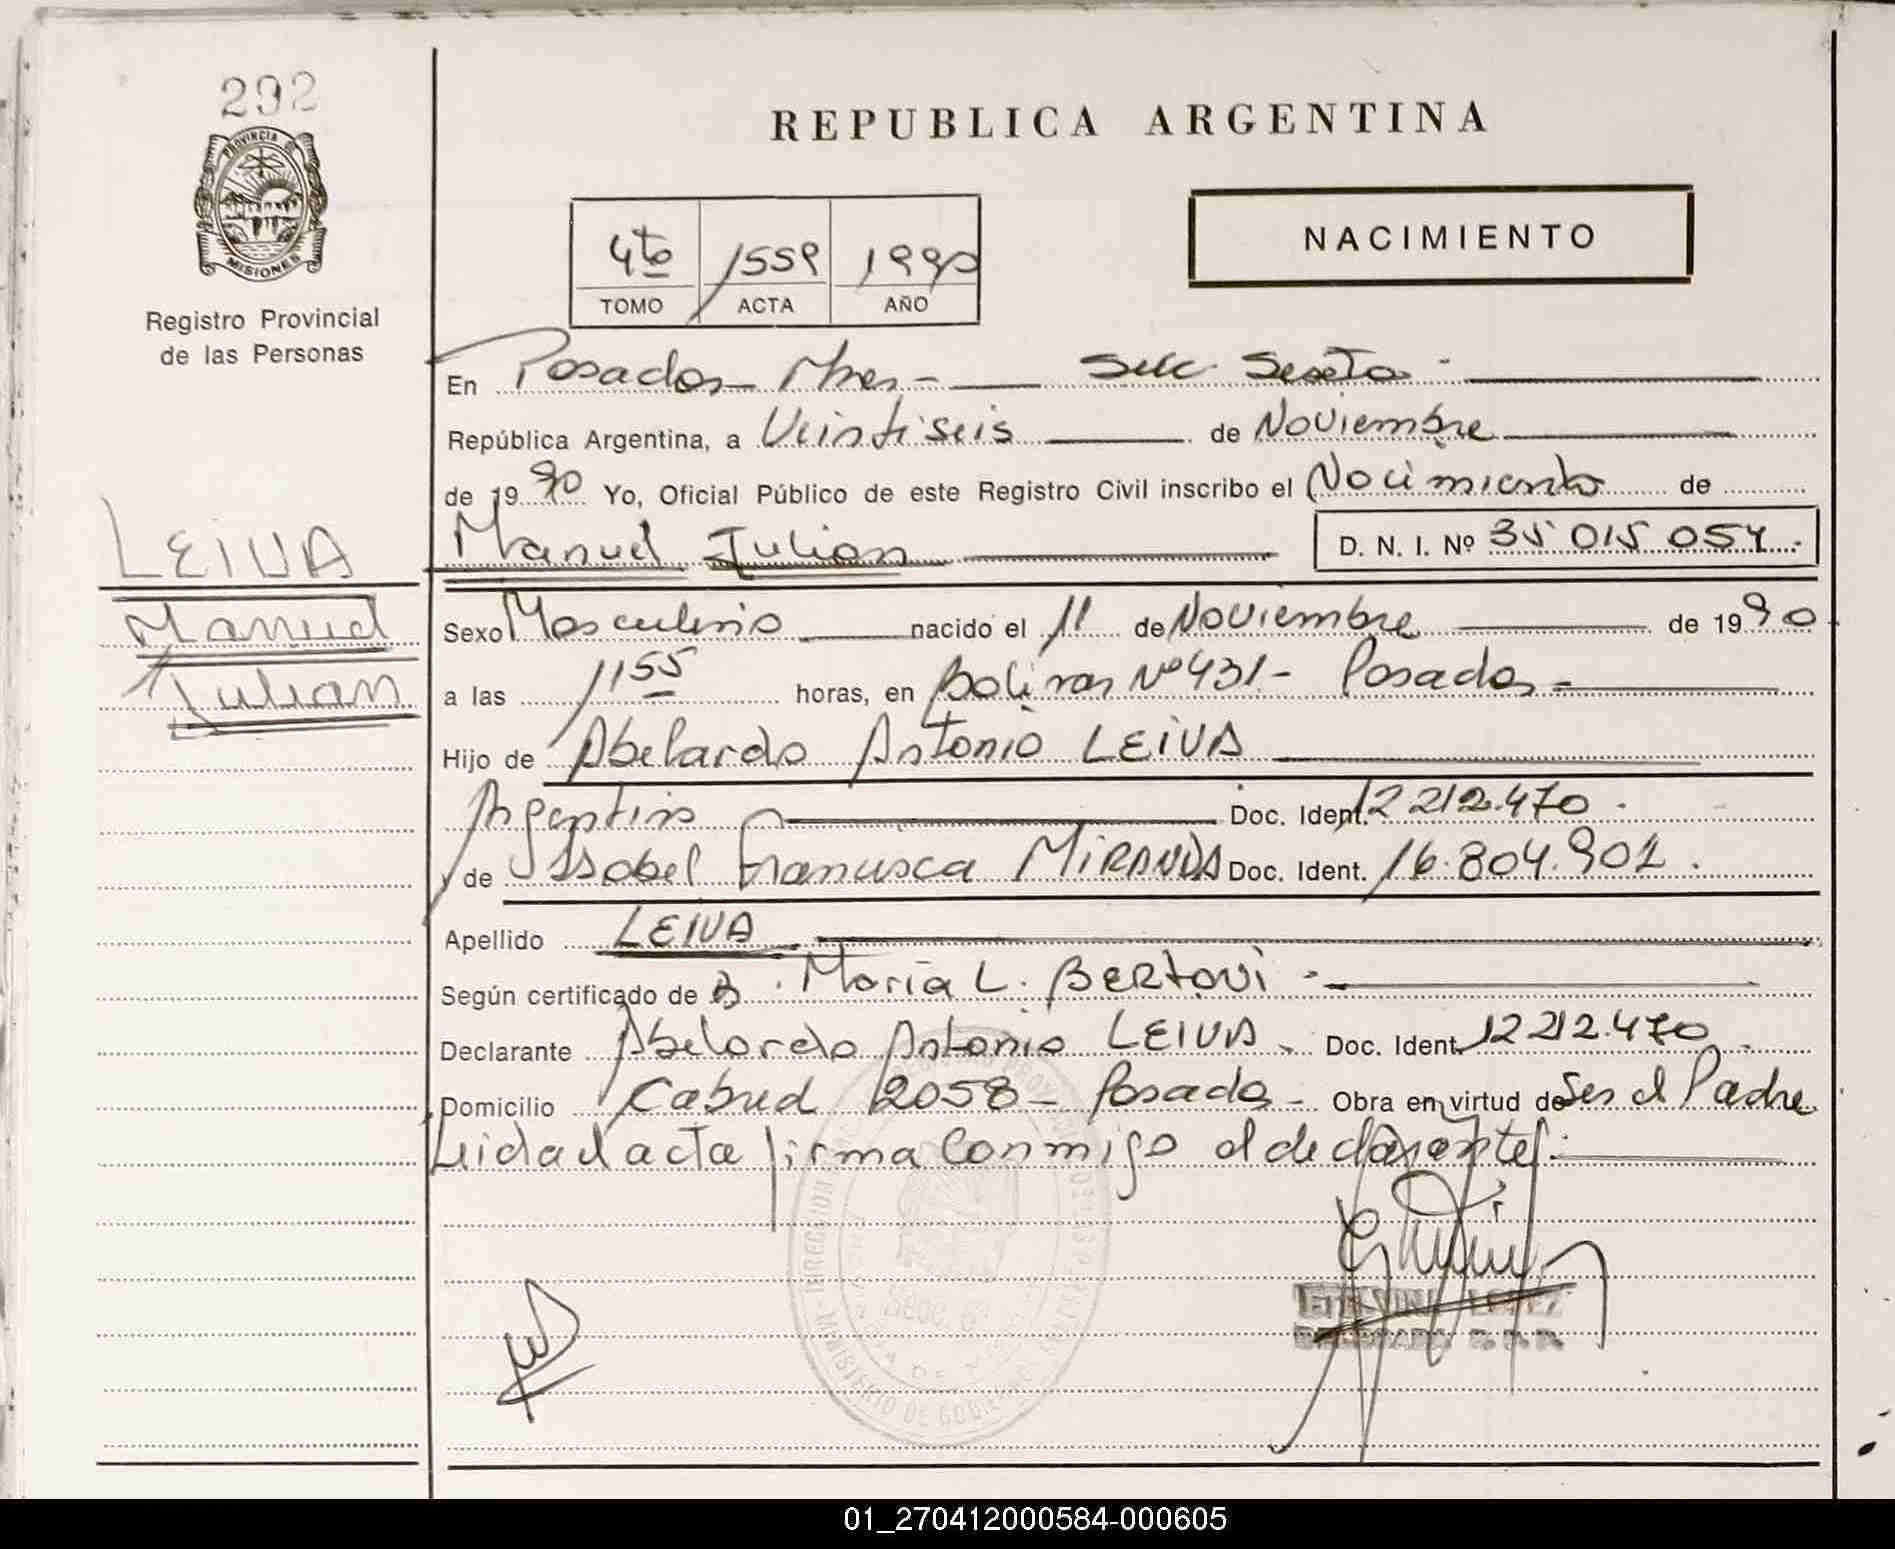 292
PROVINCIA DE
MISIONES
Registro Provincial
de las Personas
LEIVA
Manuel
Julian
REPUBLICA ARGENTINA
4to 1559 1990
TOMO ACTA AÑO
NACIMIENTO
En Posadas Mnes - Secc. Sexta -
República Argentina, a Veintiseis de Noviembre
de 1990 Yo, Oficial Público de este Registro Civil inscribo el Nacimiento de
Manuel Julian D. N. I. Nº 35 015 054.-
Sexo Masculino nacido el 11 de Noviembre de 1990
a las 1155 horas, en Bolivar Nº 431 - Posadas -
Hijo de Abelardo Antonio LEIVA
Argentino Doc. Ident. 12 212.470 -
y de Issabel Francisca MIRANDA Doc. Ident. 16.804.901.
Apellido LEIVA
Según certificado de María L. BERTONI -
Declarante Abelardo Antonio LEIVA - Doc. Ident. 12 212.470
Domicilio Cabred 2058 - Posadas - Obra en virtud de Ser el Padre
Leida el acta firma conmigo el declarante
MINISTERIO DE GOBIERNO
SECC. 6ª
ETELVINA LOPEZ
DELEGADA R. P. P.
01_270412000584-000605